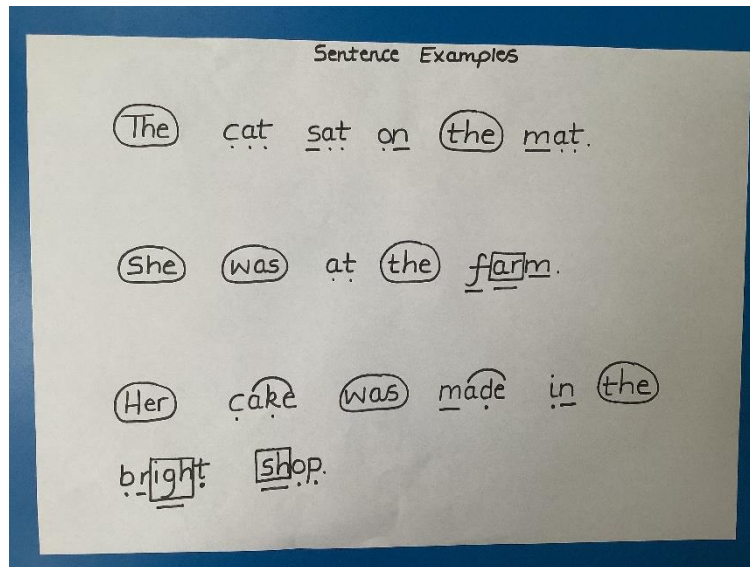 Sentence Examples
The cat sat on the mat.
She was at the farm.
Her cake was made in the
bright shop.